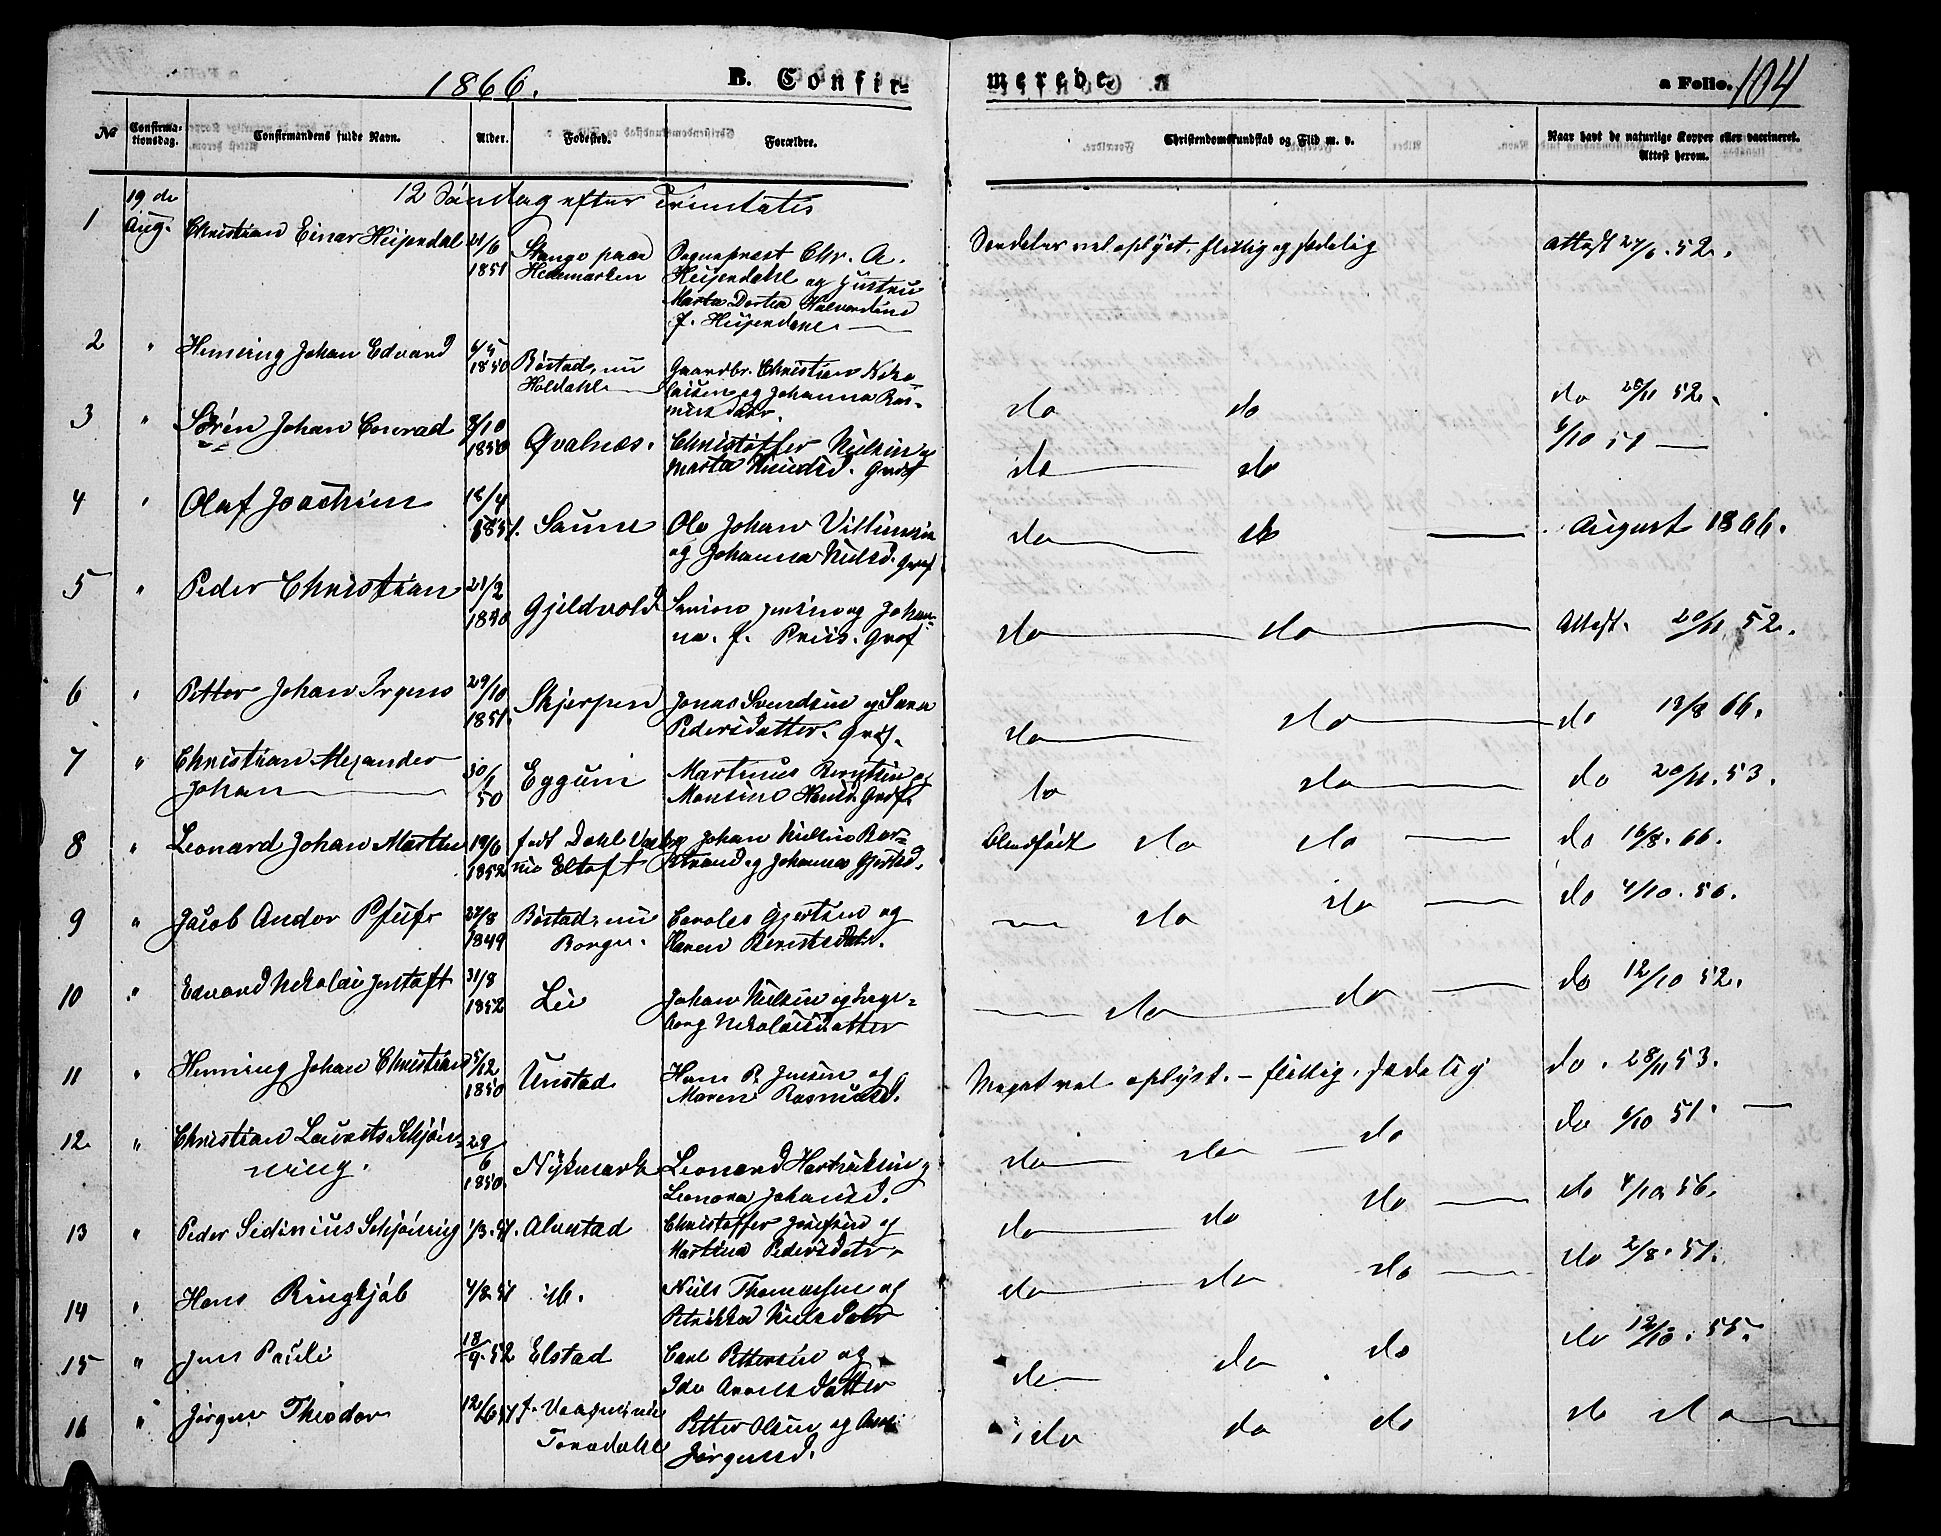 1866.
B. Confir-
merede.
a Folio. 104
No
Confirma-
tionsdag.
Confirmandens fulde Navn.
Alder.
Fødested.
Forældre.
Christendomskundskab og Flid m. v.
Naar havt de naturlige Kopper eller vaccineret.
Attest herom.
19 de
Aug.
12 Søndag efter Trinitatis
1 Christian Einar Heijerdal 21/6 1851 Stange paa Hedemarken
Sognepræst Chr. A.
Heijerdahl og Hustru
Marta Dortea Halvardine
f. Heijerdahl
vel oplyst, flittig og sædelig
Attest 27/6. 52.
2 " Henning Johan Edvard 6/5 1850 Bøstad, nu Holdahl
Gaardbr. Christian Niko-
laisen og Johanna Ras-
musdatr.
do do do 28/11 52.
3 " Søren Johan Conrad 8/10 1850 Qvalnæs.
Christoffer Nielsen og
Marta Nielsd. Grøf
do do 6/10 51
4 " Olaf Joachim 18/4 1851. Saune
Ole Johan Villumsen
og Johanna Nielsd. Grøf
do do August 1866.
5 " Peder Christian 21/2 1850 Gjeldvold
Simon Jensen og Johan-
na. f. Priis. Grøf
do do Attest. 20/11 52.
6 " Petter Johan Irgens 29/10 1851. Skjerpen
Jonas Svendsen og Sara
Pedersdatter. Grøf.
do do do 19/8 66.
7 " Christian Alexander
Johan 30/1 50 Eggum
Martinus Berntsen og
Monsine Hansd. Grøf.
do do do 20/11. 53.
8 " Leonard Johan Martin 19/6 1852 født Dahl nu Eltoft
Johan Nielsen Bor-
strand og Johanna Gjertsd.
Blindfødt do do do 16/8. 66.
9 " Jacob Andor Pfufs 27/8 1849 Bøstad, nu Borge.
Caroles Gjertsen og
Karen Berntsdatr.
do do do 4/10. 56.
10 " Edvard Nikolai Justoft 31/8 1852 Lie
Johan Nielsen og Inge-
borg Nikolaisdatter
do do do 12/10 52.
11 " Henning Johan Christian 5/12 1850 Unstad
Hans P. Jensen og
Maren Rasmusd.
Meget vel oplyst. - flittig, sædelig
do. 28/11 53.
12 " Christian Laurits Schjøn-
ning. 29/6 1850. Nykmark
Leonard Hartviksen og
Leonora Johansd.
do do do do 6/10 51.
13 " Peder Sidinius Schjønnig 1/3. 51. Alvstad
Christoffer Josefsen og
Martina Pedersdatr.
do do do do 4/10 56.
14 " Hans Ringkjøb 4/8. 51 ib.
Niels Thomassen og
Petrikka Nielsdatr
do do do do 2/8. 51.
15 " Jens Pauli 18/9. 52 Elstad
Carl Pettersen og
Ida Arentsdatter
do do do do 12/10. 55.
16 " Jørgen Theodor 12/6 51 f. Vaagene nu
Torsdahl
Petter Olsen og Ane
Jørgensd.
do do do do do